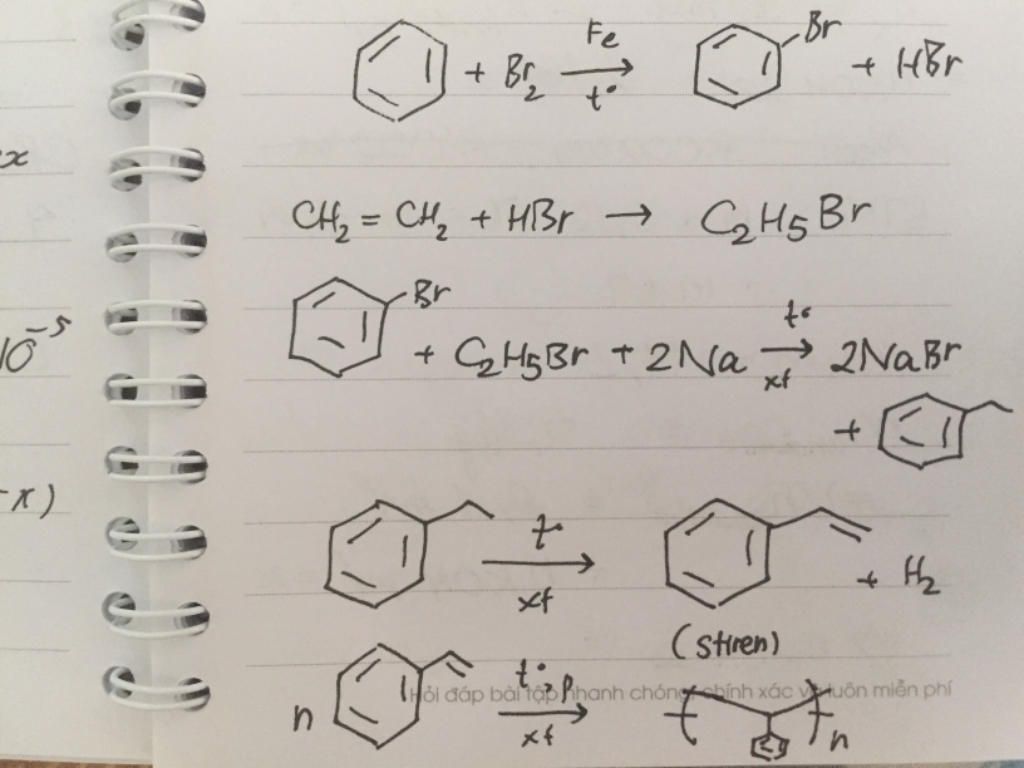 + Br₂ Fe t° Br + HBr
CH₂ = CH₂ + HBr → C₂H₅Br
Br + C₂H₅Br + 2Na t° xt → 2NaBr
+
t° xt → + H₂
(stiren)
n t°, p xt → ( )n
Hỏi đáp bài tập nhanh chóng, chính xác và luôn miễn phí
x
10⁻⁵
-x)